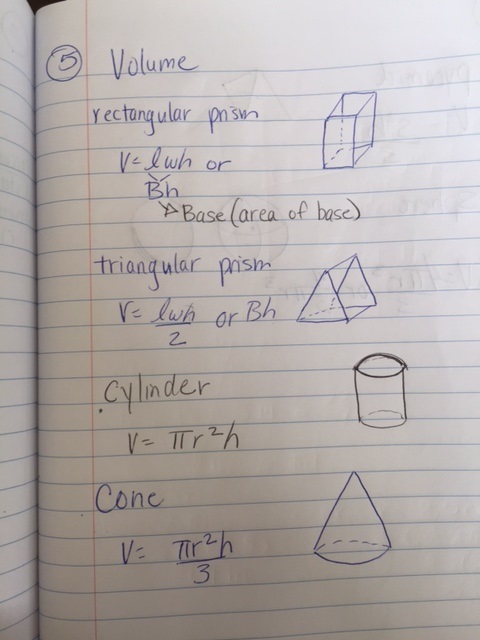 5 Volume
rectangular prism
V = lwh or
Bh
Base (area of base)
triangular prism
V = lwh/2 or Bh
Cylinder
V = πr²h
Cone
V = πr²h/3